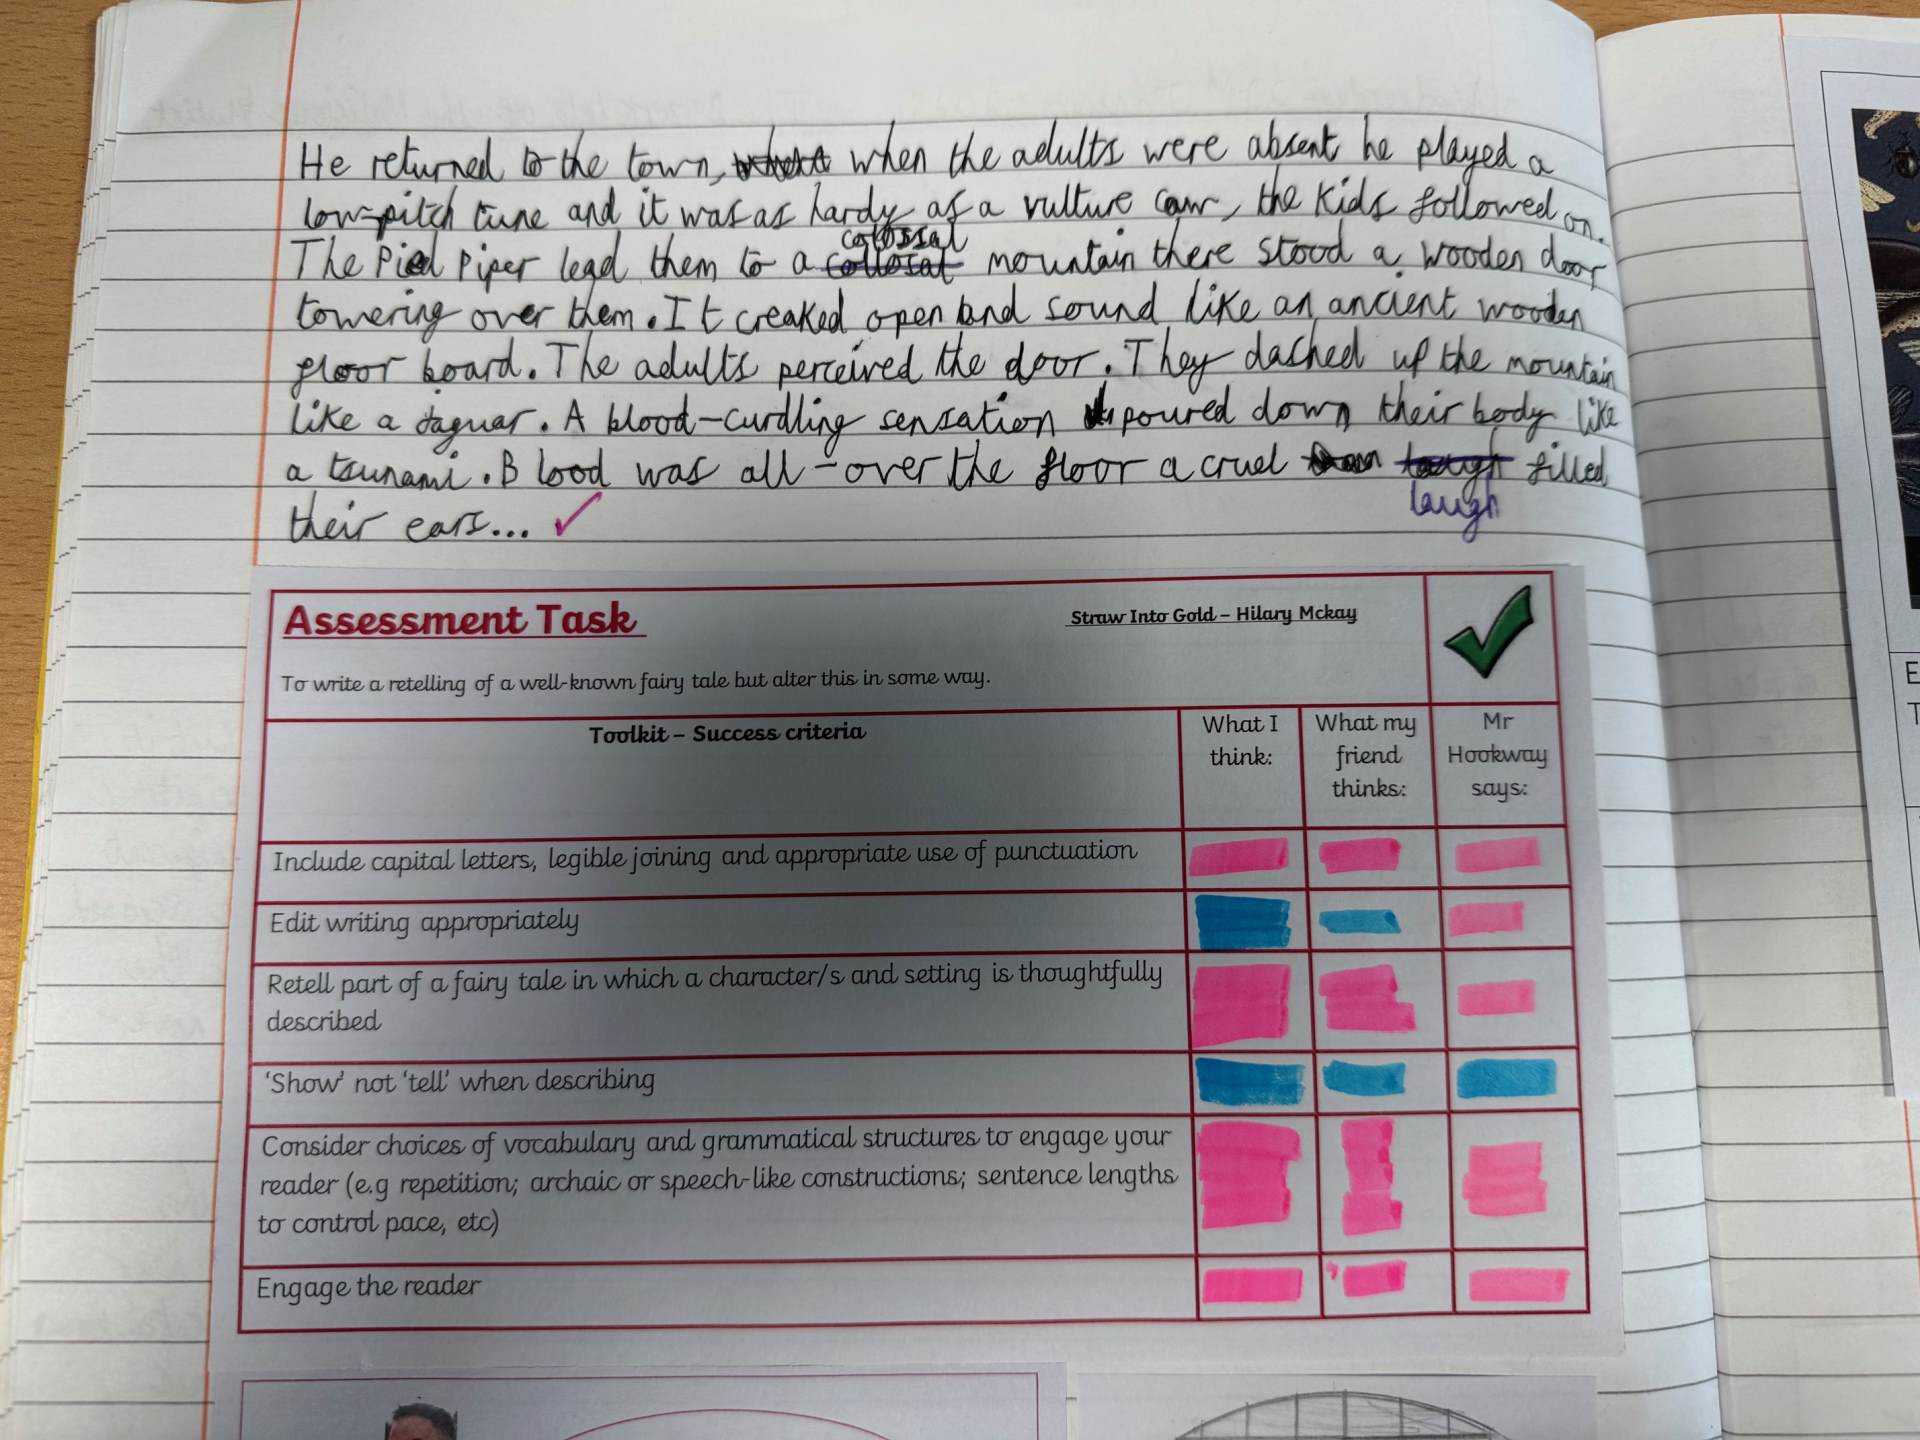 He returned to the town, when the adults were absent he played a
low-pitch tune and it was as hardy as a vulture caw, the kids followed on.
colossal
The Pied Piper lead them to a collosal mountain there stood a wooden door
towering over them. It creaked open and sound like an ancient wooden
floor board. The adults perceived the door. They dashed up the mountain
like a jaguar. A blood-curdling sensation poured down their body like
a tsunami. Blood was all-over the floor a cruel filled
laugh
their ears...
Assessment Task
Straw Into Gold – Hilary Mckay
To write a retelling of a well-known fairy tale but alter this in some way.
Toolkit – Success criteria
What I think:
What my friend thinks:
Mr Hookway says:
Include capital letters, legible joining and appropriate use of punctuation
Edit writing appropriately
Retell part of a fairy tale in which a character/s and setting is thoughtfully
described
'Show' not 'tell' when describing
Consider choices of vocabulary and grammatical structures to engage your
reader (e.g repetition; archaic or speech-like constructions; sentence lengths
to control pace, etc)
Engage the reader